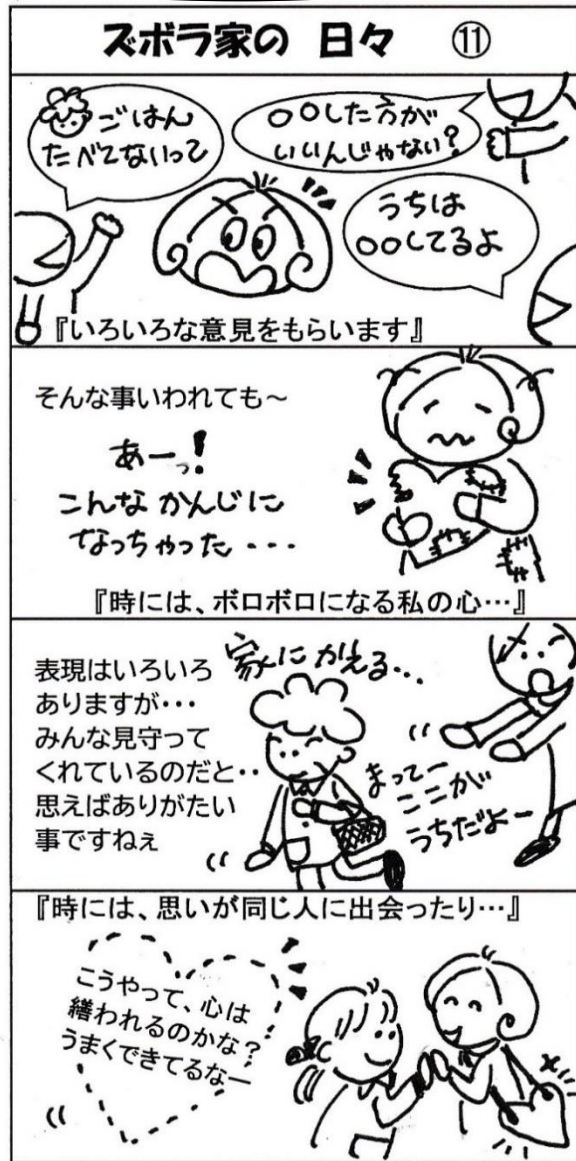 ズボラ家の 日々 ⑪
ごはん
たべてないって
○○した方が
いいんじゃない?
うちは
○○してるよ
『いろいろな意見をもらいます』
そんな事いわれても～
あーっ!
こんな かんじに
なっちゃった・・・
『時には、ボロボロになる私の心…』
表現はいろいろ
ありますが・・・
みんな見守って
くれているのだと・・
思えばありがたい
事ですねぇ
家にかえる・・
まってー
ここが
うちだよー
『時には、思いが同じ人に出会ったり…』
こうやって、心は
繕われるのかな?
うまくできてるなー